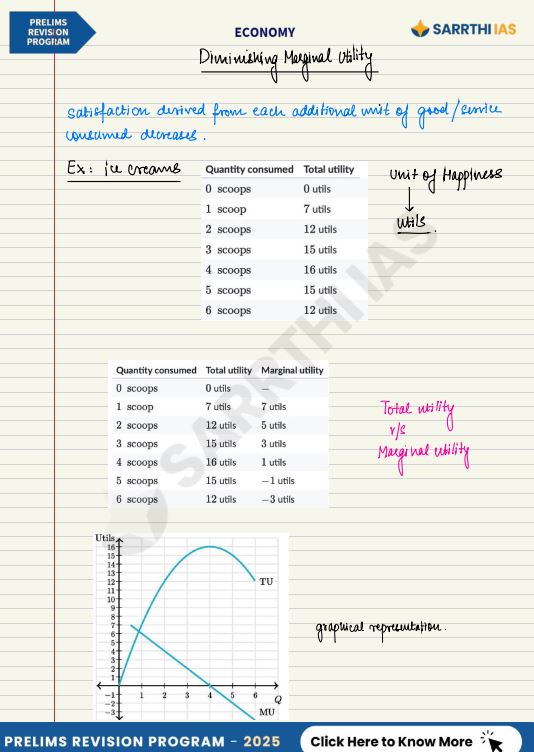 PRELIMS
REVISION
PROGRAM
ECONOMY
SARRTHI IAS
Diminishing Marginal Utility
Satisfaction derived from each additional unit of good/service
consumed decreases.
Ex: ice creams
Quantity consumed Total utility
0 scoops 0 utils
1 scoop 7 utils
2 scoops 12 utils
3 scoops 15 utils
4 scoops 16 utils
5 scoops 15 utils
6 scoops 12 utils
Unit of Happiness
↓
utils.
SARRTHI IAS
Quantity consumed Total utility Marginal utility
0 scoops 0 utils —
1 scoop 7 utils 7 utils
2 scoops 12 utils 5 utils
3 scoops 15 utils 3 utils
4 scoops 16 utils 1 utils
5 scoops 15 utils −1 utils
6 scoops 12 utils −3 utils
Total utility
v/s
Marginal utility
Utils
16
15
14
13
12
11
10
9
8
7
6
5
4
3
2
1
−1
−2
−3
1 2 3 4 5 6 Q
TU
MU
graphical representation.
PRELIMS REVISION PROGRAM - 2025
Click Here to Know More